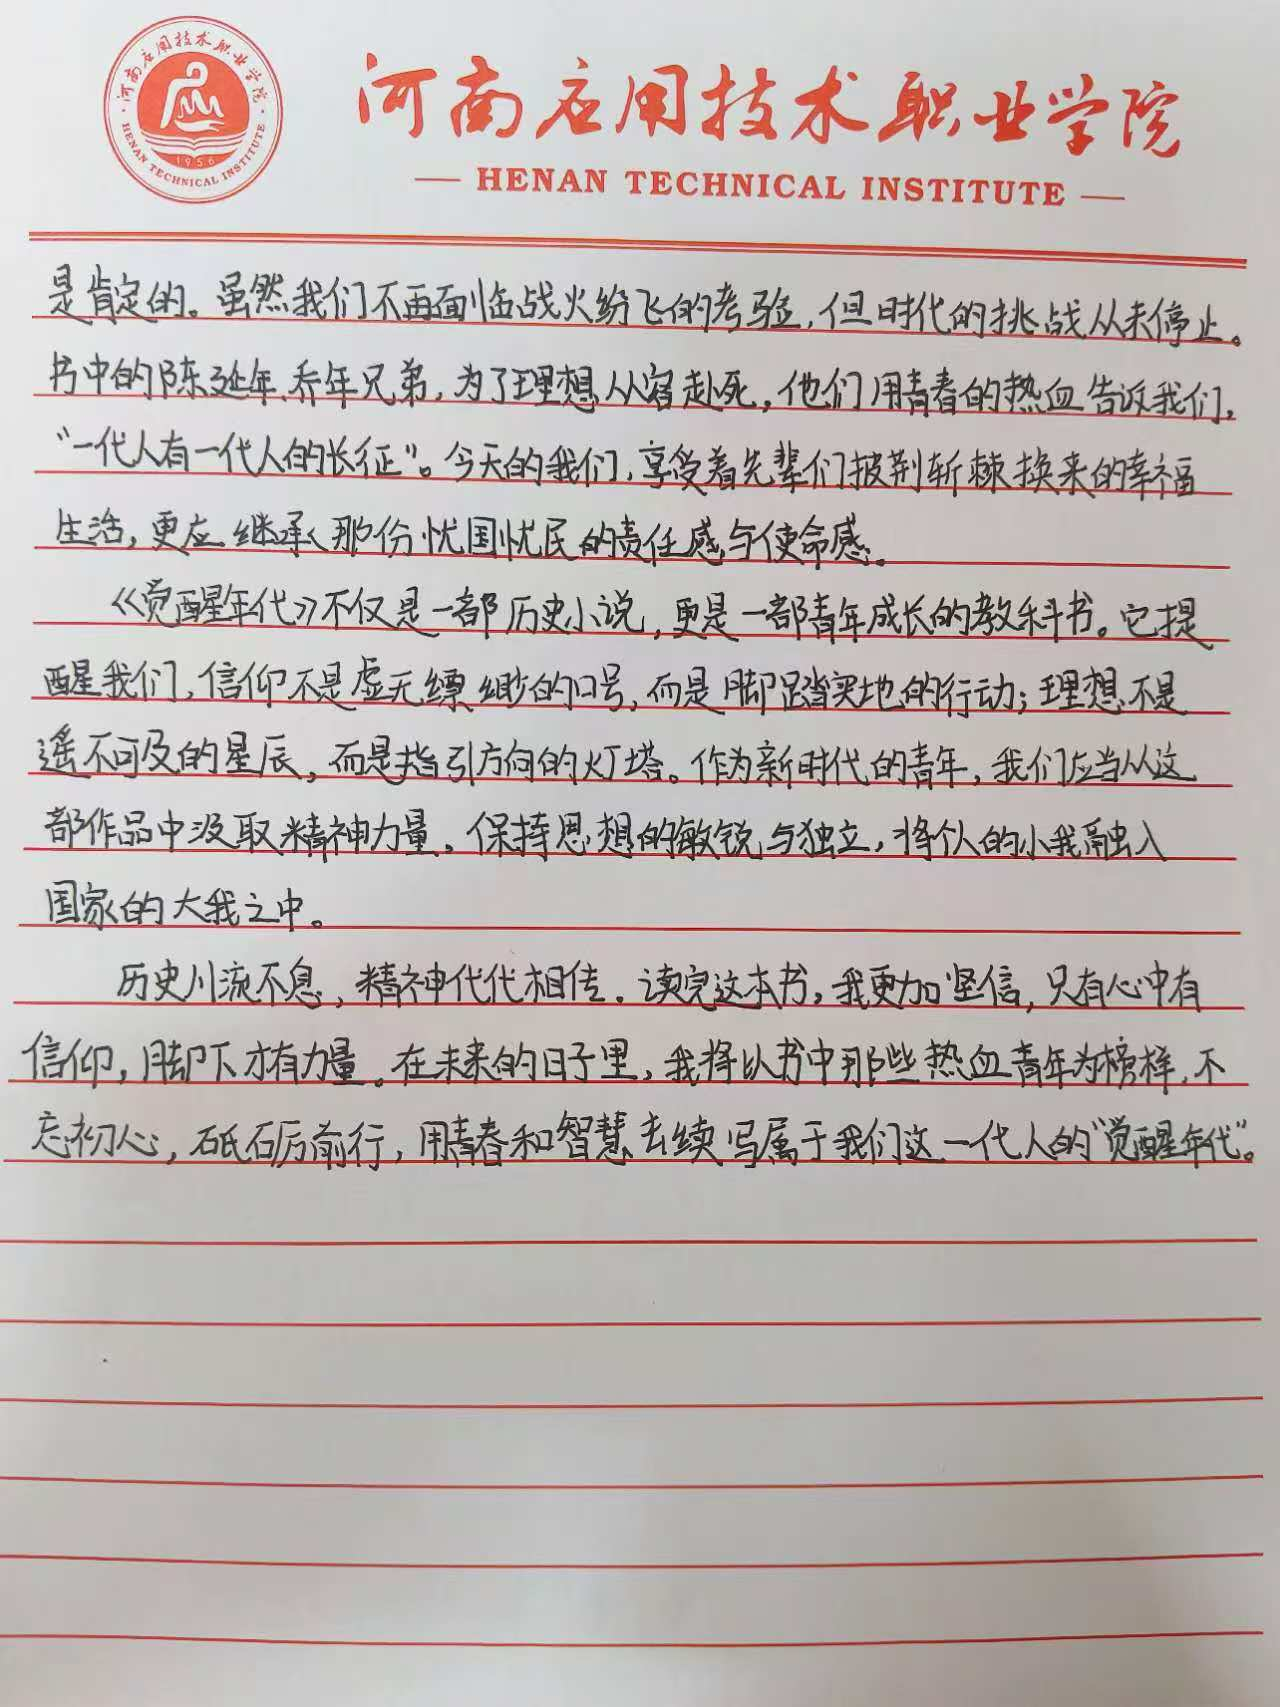 河南应用技术职业学院
HENAN TECHNICAL INSTITUTE
1956
河南应用技术职业学院
— HENAN TECHNICAL INSTITUTE —
是肯定的。虽然我们不再面临战火纷飞的考验，但时代的挑战从未停止。
书中的陈延年、乔年兄弟，为了理想从容赴死，他们用青春的热血告诉我们，
“一代人有一代人的长征”。今天的我们，享受着先辈们披荆斩棘换来的幸福
生活，更应继承那份忧国忧民的责任感与使命感。
《觉醒年代》不仅是一部历史小说，更是一部青年成长的教科书。它提
醒我们，信仰不是虚无缥缈的口号，而是脚踏实地的行动；理想不是
遥不可及的星辰，而是指引方向的灯塔。作为新时代的青年，我们应当从这
部作品中汲取精神力量。保持思想的敏锐与独立，将个人的小我融入
国家的大我之中。
历史川流不息，精神代代相传。读完这本书，我更加坚信，只有心中有
信仰，脚下才有力量。在未来的日子里，我将以书中那些热血青年为榜样，不
忘初心，砥砺前行，用青春和智慧去续写属于我们这一代人的“觉醒年代”。